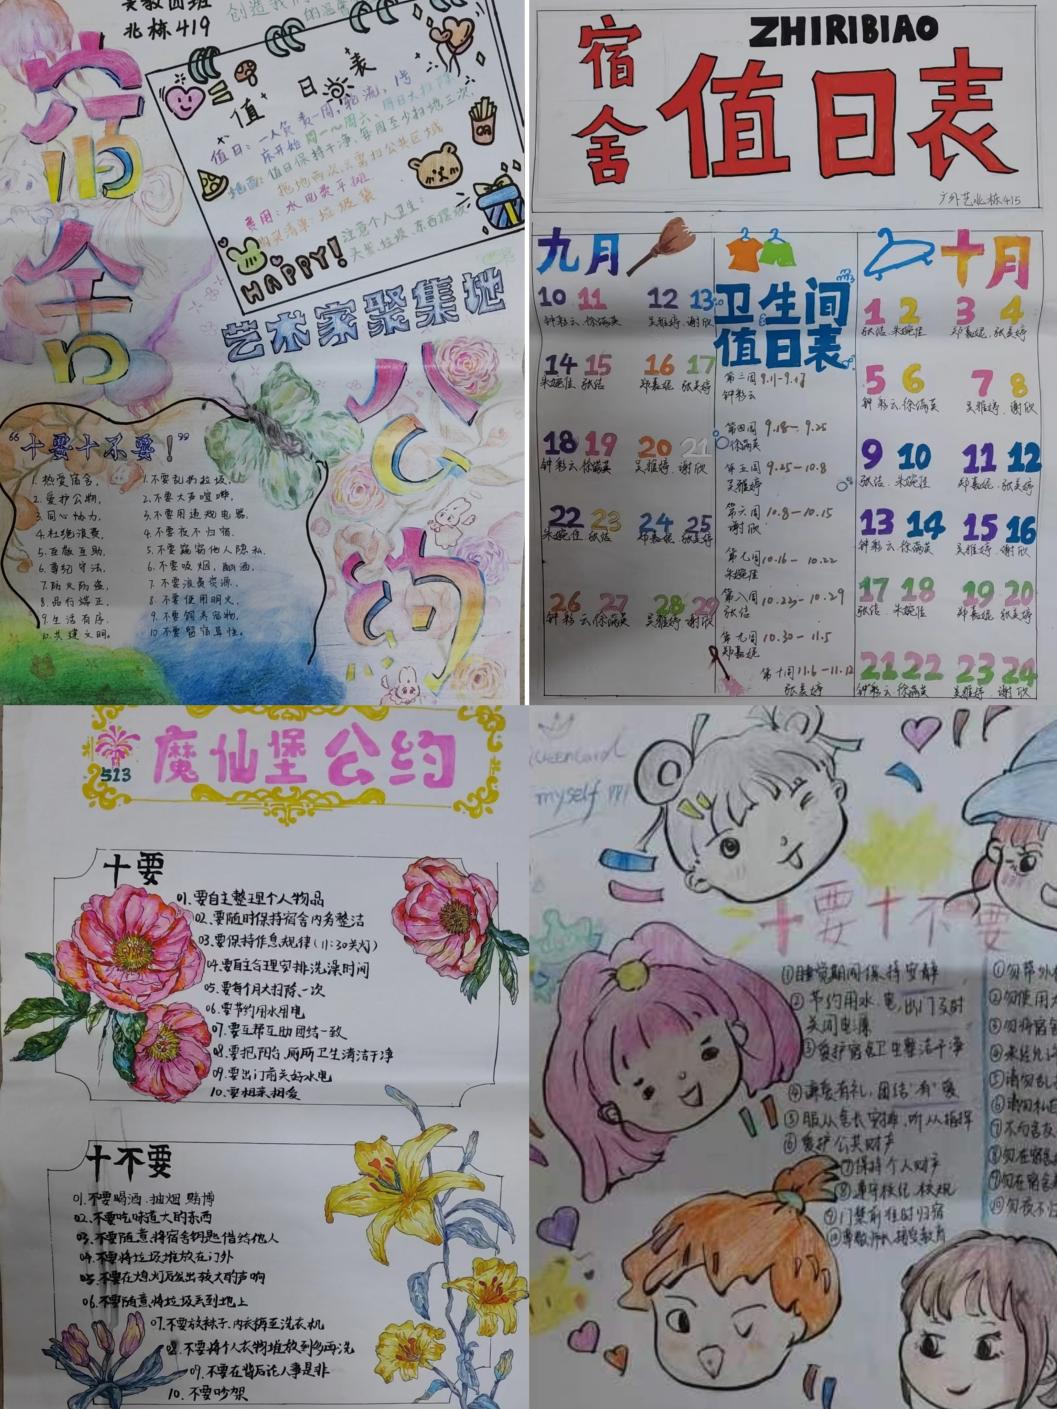 北栋419
宿舍公约
值日表
值日：一人负责一周，轮流，1号
床开始 周一~周六
值日保持干净，每周至少扫地三次，
拖地两次
费用：水电费平摊
垃圾袋
注意个人卫生：
HAPPY!
艺术家聚集地
“十要十不要！”
1.热爱宿舍，
2.爱护公物，
3.同心协力，
4.杜绝浪费，
5.互敬互助，
6.遵纪守法，
7.防火防盗，
8.品行端正，
9.生活有序，
10.共建文明，
1.不要乱扔垃圾，
2.不要大声喧哗，
3.不要用违规电器，
4.不要夜不归宿，
5.不要窥窃他人隐私，
6.不要吸烟，酗酒，
7.不要浪费资源，
8.不要使用明火，
9.不要饲养宠物，
10.不要留宿异性。
ZHIRIBIAO
宿舍
值日表
九月
10 11 12 13
钟彩云 徐满英 吴雅婷 谢欣
14 15 16 17
朱婉佳 张结 郑嘉妮 张美婷
18 19 20 21
钟彩云 徐满英 吴雅婷 谢欣
22 23 24 25
朱婉佳 张结 郑嘉妮 张美婷
26 27 28 29
钟彩云 徐满英 吴雅婷 谢欣
卫生间
值日表
第三周 9.11-9.17
钟彩云
第四周 9.18-9.25
徐满英
第五周 9.25-10.8
吴雅婷
第六周 10.8-10.15
谢欣
第七周 10.16-10.22
朱婉佳
第八周 10.23-10.29
张结
第九周 10.30-11.5
郑嘉妮
第十周 11.6-11.12
张美婷
十月
1 2 3 4
张结 朱婉佳 郑嘉妮 张美婷
5 6 7 8
钟彩云 徐满英 吴雅婷 谢欣
9 10 11 12
张结 朱婉佳 郑嘉妮 张美婷
13 14 15 16
钟彩云 徐满英 吴雅婷 谢欣
17 18 19 20
张结 朱婉佳 郑嘉妮 张美婷
21 22 23 24
钟彩云 徐满英 吴雅婷 谢欣
513
魔仙堡公约
十要
01.要自主整理个人物品
02.要随时保持宿舍内务整洁
03.要保持作息规律（11:30关灯）
04.要自主合理安排洗澡时间
05.要每个月大扫除一次
06.要节约用水用电
07.要互帮互助团结一致
08.要把阳台、厕所卫生清洁干净
09.要出门前关好水电
10.要相亲相爱
十不要
01.不要喝酒 抽烟 赌博
02.不要吃味道大的东西
03.不要随意将宿舍钥匙借给他人
04.不要将垃圾堆放在门外
05.不要在熄灯后发出较大的声响
06.不要随意将垃圾丢到地上
07.不要放袜子、内衣裤至洗衣机
08.不要将个人衣物堆放到多再洗
09.不要在背后论人事是非
10.不要吵架
myself
十要十不要
①睡觉期间保持安静
②节约用水、电，出门及时
关闭电源
③爱护宿舍卫生整洁干净
④谦让有礼，团结有爱
⑤服从舍长安排，听从指挥
⑥爱护公共财产
⑦保持个人财产
⑧遵守校纪校规
⑨门禁前准时归宿
⑩尊敬师长接受教育